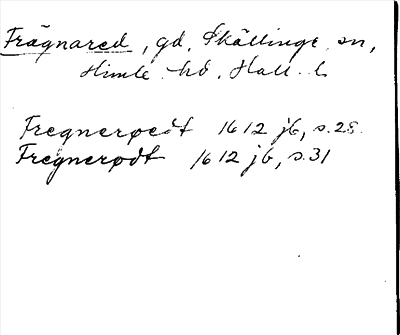 Frägnared, gd, Skällinge sn,
Himle hd, Hall. l.
Fregnerøedt 1612 jb, s. 28.
Fregnerødt 1612 jb, s. 31